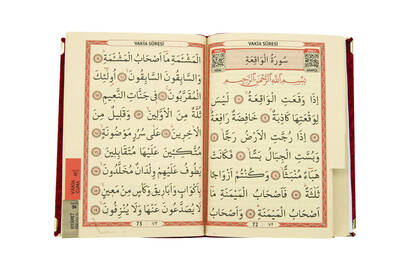 VAKİA SÛRESİ
سُورَةُ الْوَاقِعَةِ
بِسْمِ اللّٰهِ الرَّحْمٰنِ الرَّحِيمِ
اِذَا وَقَعَتِ الْوَاقِعَةُ ۝ لَيْسَ
لِوَقْعَتِهَا كَاذِبَةٌ ۝ خَافِضَةٌ رَافِعَةٌ
۝ اِذَا رُجَّتِ الْاَرْضُ رَجًّا ۝
وَبُسَّتِ الْجِبَالُ بَسًّا ۝ فَكَانَتْ
هَبَٓاءً مُنْبَثًّا ۝ وَكُنْتُمْ اَزْوَاجًا
ثَلٰثَةً ۝ فَاَصْحَابُ الْمَيْمَنَةِ مَٓا
اَصْحَابُ الْمَيْمَنَةِ ۝ وَاَصْحَابُ
72 ٧٢
VAKİA SÛRESİ
الْمَشْئَمَةِ مَٓا اَصْحَابُ الْمَشْئَمَةِ ۝
وَالسَّابِقُونَ السَّابِقُونَ ۝ اُولٰٓئِكَ
الْمُقَرَّبُونَ ۝ فِي جَنَّاتِ النَّعِيمِ ۝
ثُلَّةٌ مِنَ الْاَوَّلِينَ ۝ وَقَلِيلٌ مِنَ
الْاٰخِرِينَ ۝ عَلٰى سُرُرٍ مَوْضُونَةٍ ۝
مُتَّكِئِينَ عَلَيْهَا مُتَقَابِلِينَ ۝
يَطُوفُ عَلَيْهِمْ وِلْدَانٌ مُخَلَّدُونَ ۝
بِاَكْوَابٍ وَاَبَارِيقَ وَكَأْسٍ مِنْ مَعِينٍ ۝
لَا يُصَدَّعُونَ عَنْهَا وَلَا يُنْزِفُونَ ۝
73 ٧٣